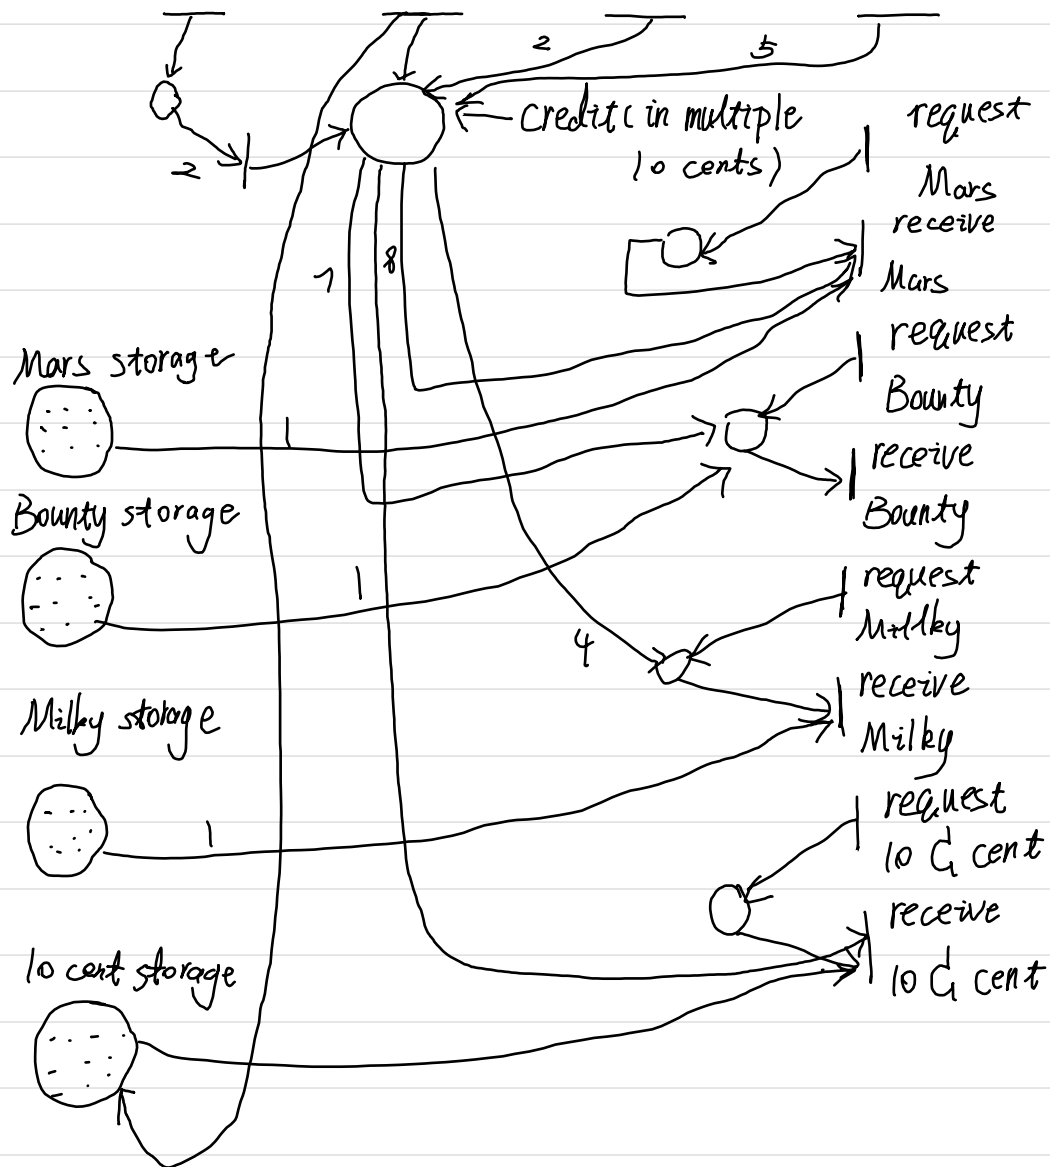 2
5
Credit( in multiple
10 cents)
2
request
Mars
receive
Mars
7
8
request
Bounty
receive
Bounty
Mars storage
1
Bounty storage
1
request
Millky
4
receive
Milky
Milky storage
1
request
10 G cent
receive
10 G cent
10 cent storage